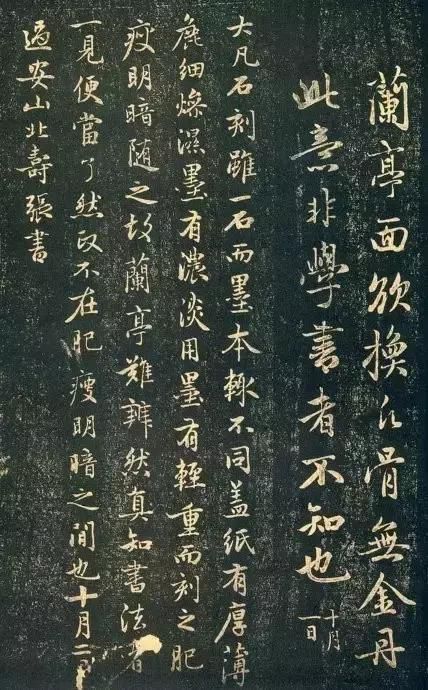 蘭亭面欲換凡骨無金丹
此意非學書者不知也
十月
一日
大凡石刻雖一石而墨本輒不同盖紙有厚薄
麁細燥濕墨有濃淡用墨有輕重而刻之肥
瘦明暗随之故蘭亭難辨然真知書法者
一見便當了然政不在肥瘦明暗之間也十月二日
過安山北壽張書